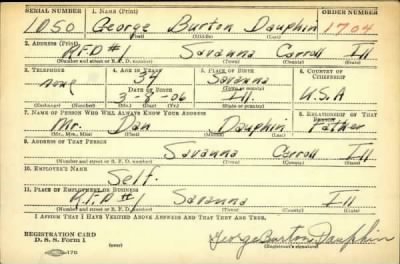 SERIAL NUMBER 1. NAME (Print) ORDER NUMBER
1050 George Burton Dauphin 1704
(First) (Middle) (Last)
2. ADDRESS (Print)
R.F.D #1 Savanna Carroll Ill
(Number and street or R. F. D. number) (Town) (County) (State)
3. TELEPHONE 4. AGE IN YEARS 5. PLACE OF BIRTH 6. COUNTRY OF CITIZENSHIP
none 34 Savanna
DATE OF BIRTH (Town or county)
3-8-06 Ill. U.S.A
(Exchange) (Number) (Mo.) (Day) (Yr.) (State or country)
7. NAME OF PERSON WHO WILL ALWAYS KNOW YOUR ADDRESS 8. RELATIONSHIP OF THAT PERSON
Mr. Dan Dauphin Father
(Mr., Mrs., Miss) (First) (Middle) (Last)
9. ADDRESS OF THAT PERSON
Savanna Carroll Ill
(Number and street or R. F. D. number) (Town) (County) (State)
10. EMPLOYER'S NAME
Self.
11. PLACE OF EMPLOYMENT OR BUSINESS
R.F.D #1 Savanna Ill
(Number and street or R. F. D. number) (Town) (County) (State)
I AFFIRM THAT I HAVE VERIFIED ABOVE ANSWERS AND THAT THEY ARE TRUE.
REGISTRATION CARD
D. S. S. Form 1 George Burton Dauphin
(Registrant's signature)